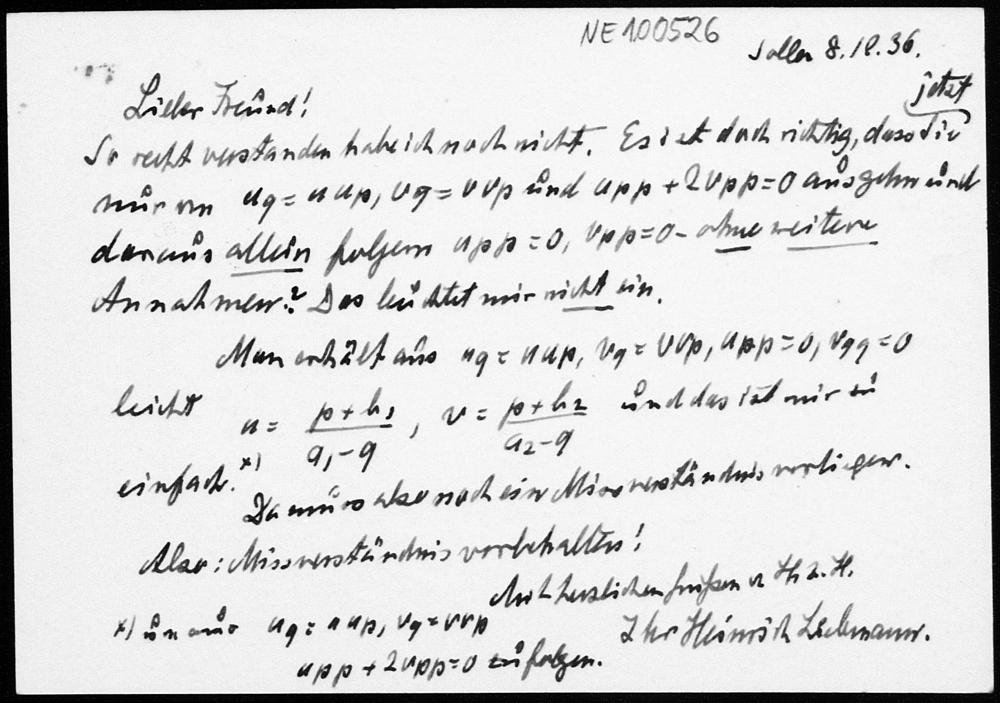 NE100526
Solln 8.12.36.
Lieber Freund!
jetzt
So recht verstanden habe ich noch nicht. Es ist doch richtig, dass Sie
nur von u_q = u u_p, v_q = v v_p und u_pp + 2v_pp = 0 ausgehn und
daraus allein folgern u_pp = 0, v_pp = 0 - ohne weitere
Annahmen? Das leuchtet mir nicht ein.
Man erhält aus u_q = u u_p, v_q = v v_p, u_pp = 0, v_qq = 0
leicht u = (p + b_1)/(a_1 - q), v = (p + b_2)/(a_2 - q) und das ist mir zu
einfach. x)
Da muss also noch ein Missverständnis vorliegen.
Also: Missverständnis vorbehalten!
Mit herzlichen Grüßen v. H. z. H.
Ihr Heinrich Liebmann.
x) um aus u_q = u u_p, v_q = v v_p
u_pp + 2v_pp = 0 zu folgen.